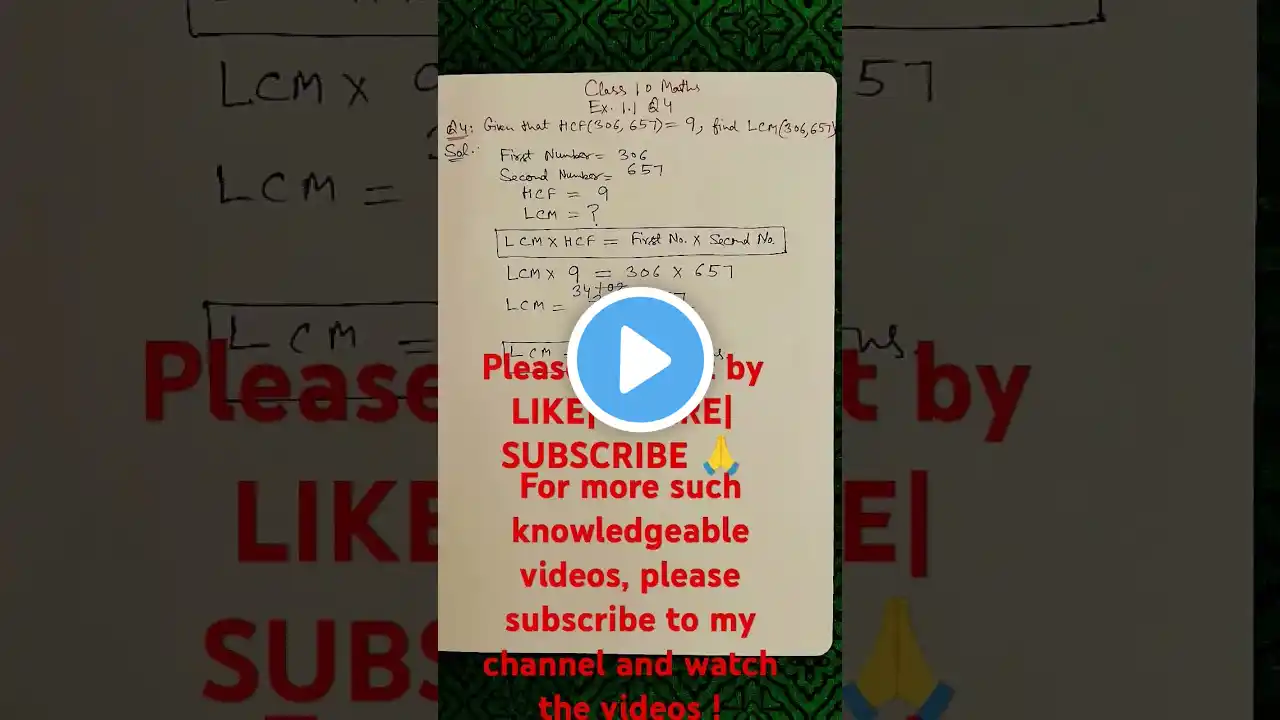 Class 10 Maths
Ex. 1.1 Q4
Q4: Given that HCF(306,657) = 9, find LCM(306,657)
Sol.: First Number = 306
Second Number = 657
HCF = 9
LCM = ?
LCM x HCF = First No. x Second No.
LCM x 9 = 306 x 657
LCM =
LCM =
by
LIKE|
SUBSCRIBE 🙏
For more such
knowledgeable
videos, please
subscribe to my
channel and watch
the videos !
LCM x 9
657
LCM =
LCM =
Please
by
LIKE